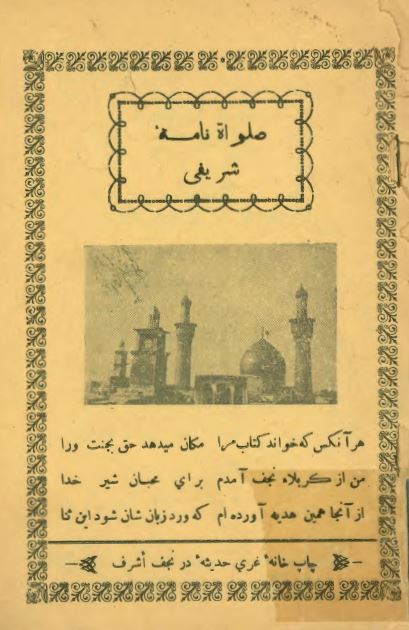 صلواة نامهٔ
شریفی
هر آنکس که خواند کتاب مرا مکان میدهد حق بجنت ورا
من از کربلاء نجف آمدم برای محبان شیر خدا
از آنجا همین هدیه آورده ام که ورد زبان شان شود این ثنا
چاپ خانهٔ غري حدیثهٔ در نجف أشرف